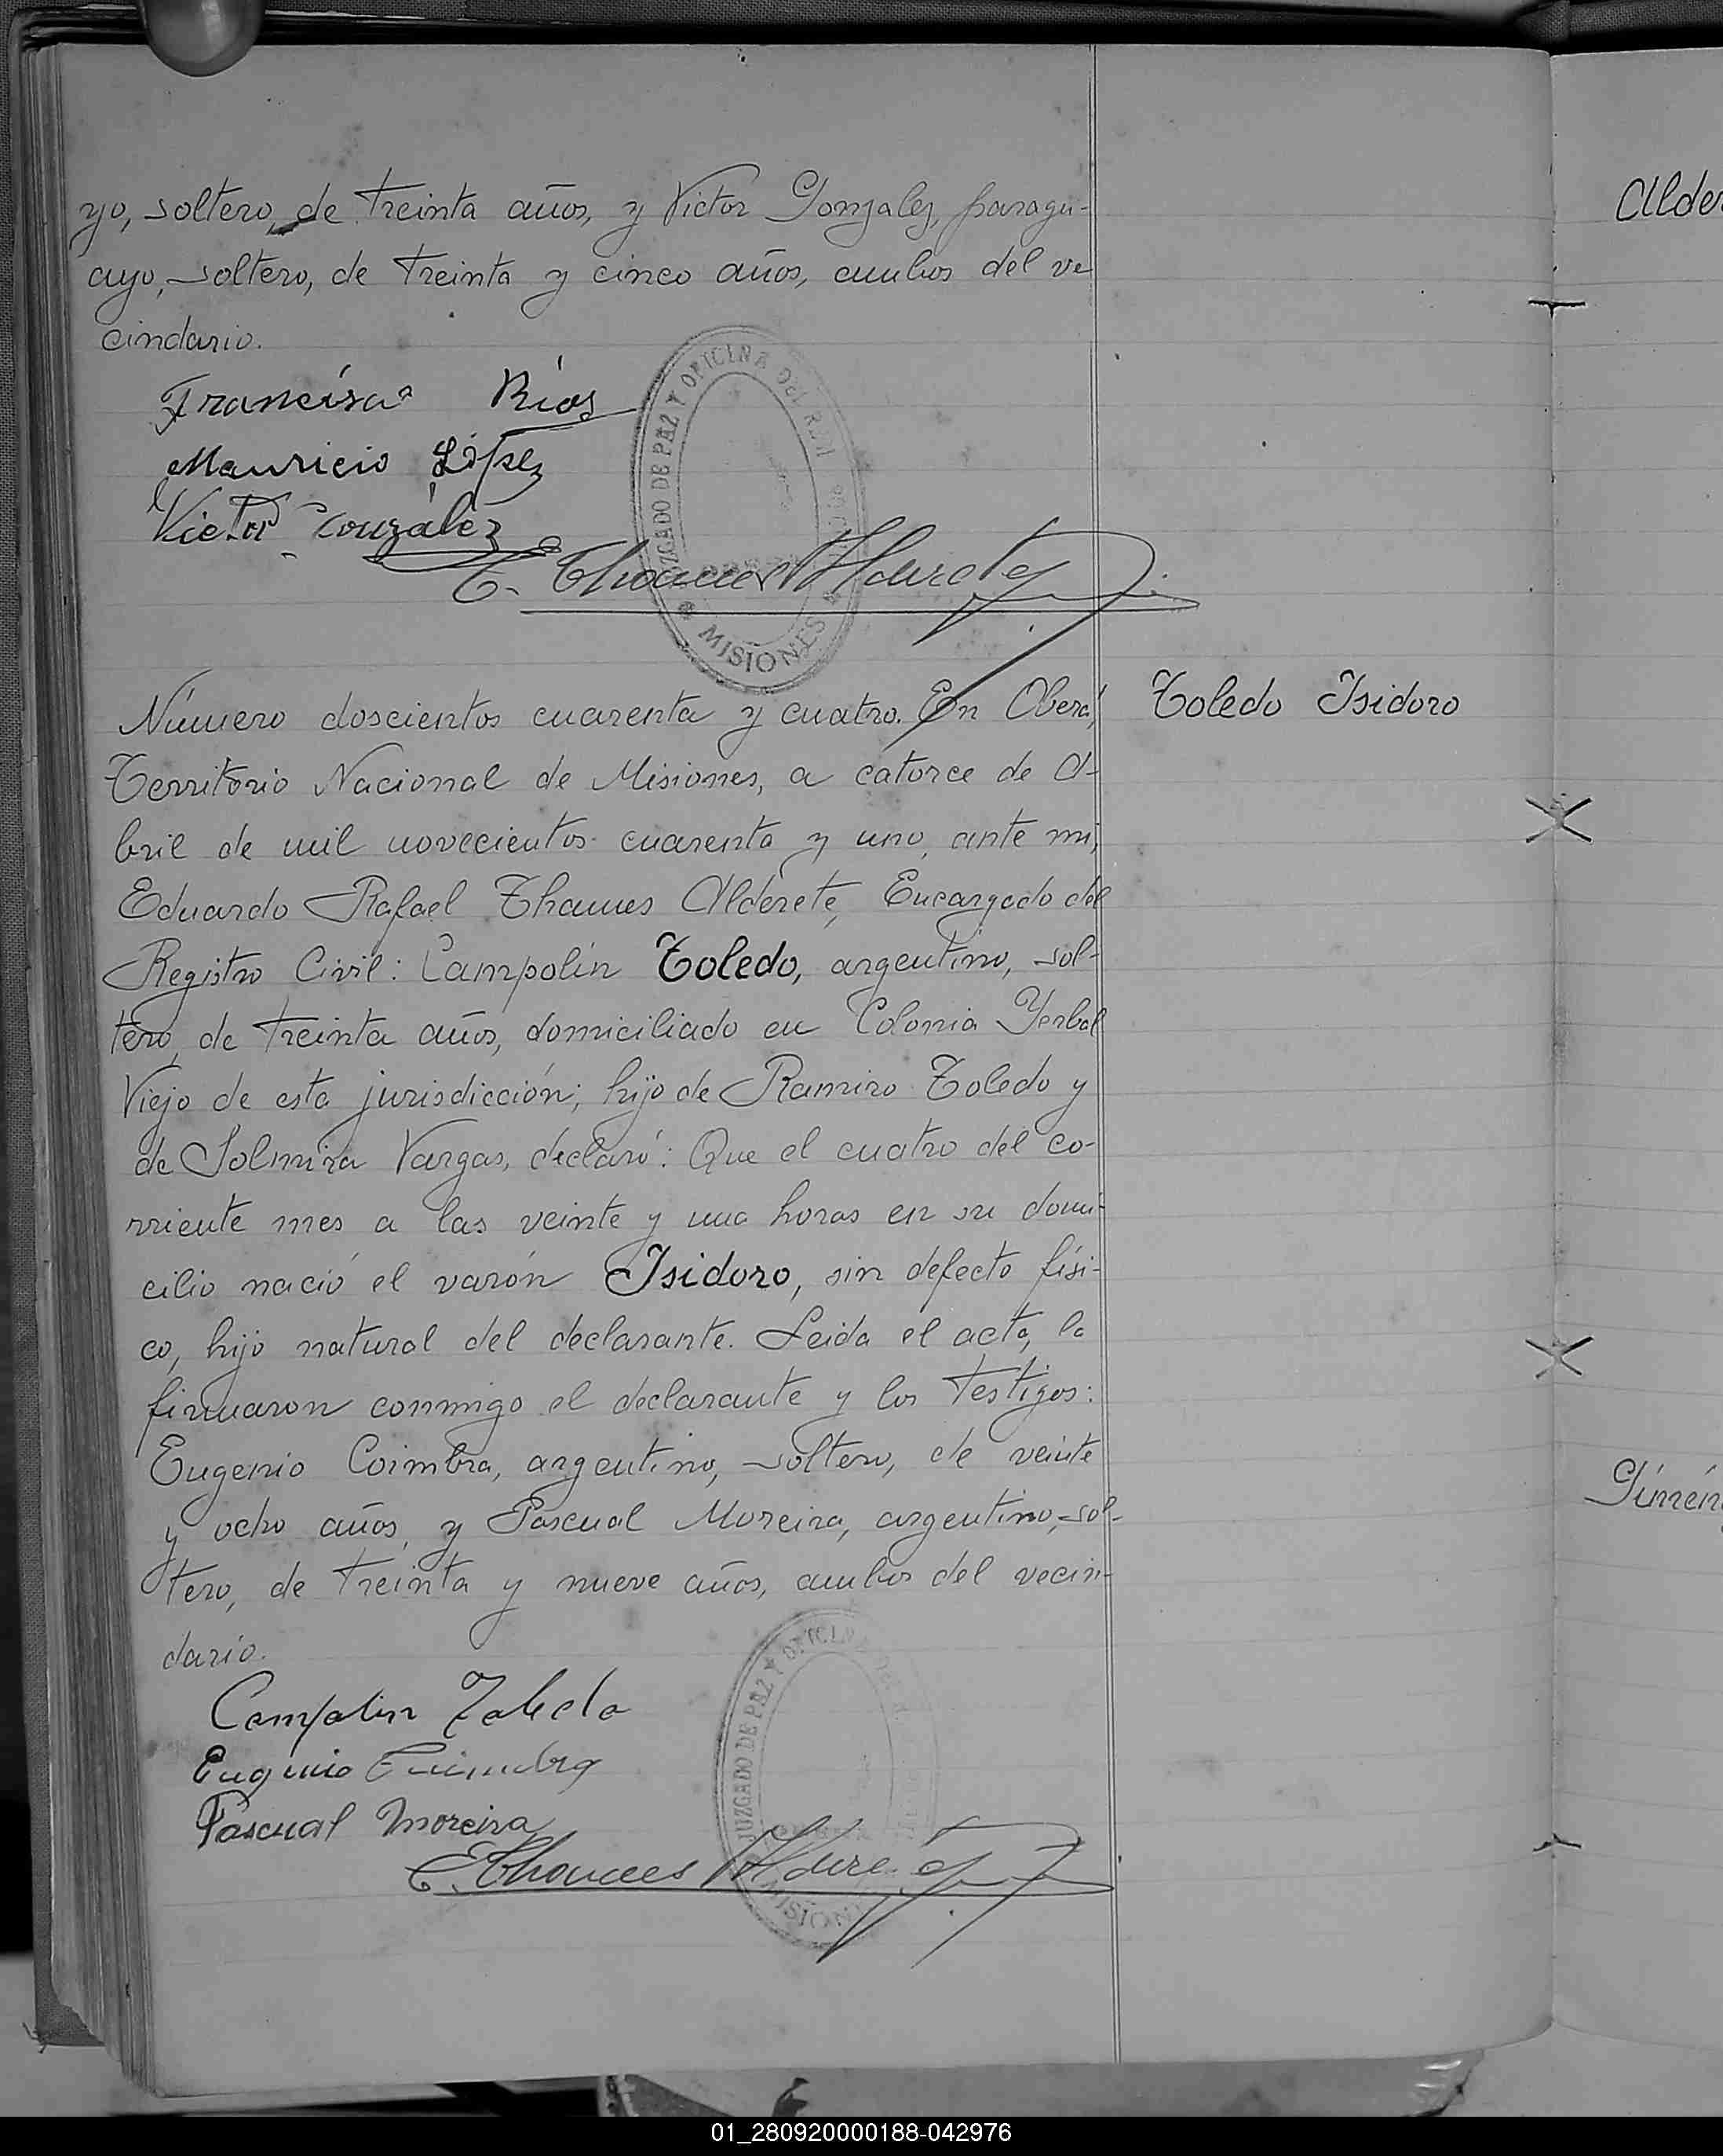 yo, soltero, de treinta años, y Victor Gonzalez, paragu-
ayo, soltero, de treinta y cinco años, ambos del ve
cindario.
Francisca Ríos
Mauricio López
Victor González
E. Thames Alderete
JUZGADO DE PAZ Y OFICINA DEL
MISIONES
Número doscientos cuarenta y cuatro. En Oberá,
Toledo Isidoro
Territorio Nacional de Misiones, a catorce de A-
bril de mil novecientos cuarenta y uno, ante mí,
Eduardo Rafael Thames Alderete, Encargado del
Registro Civil: Campolín Toledo, argentino, sol-
tero, de treinta años, domiciliado en Colonia Yerbal
Viejo de esta jurisdicción; hijo de Ramiro Toledo y
de Solmira Vargas, declaró: Que el cuatro del co-
rriente mes a las veinte y una horas en su domi-
cilio nació el varón Isidoro, sin defecto físi-
co, hijo natural del declarante. Leida el acta, la
firmaron conmigo el declarante y los testigos:
Eugenio Coimbra, argentino, soltero, de veinte
y ocho años, y Pascual Moreira, argentino, sol-
tero, de treinta y nueve años, ambos del vecin-
dario.
Campolin Toledo
Eugenio Cuimbra
Pascual Moreira
E. Thames Alderete
JUZGADO DE PAZ Y OFICINA
MISIONES
Alder
Gimén
01_280920000188-042976